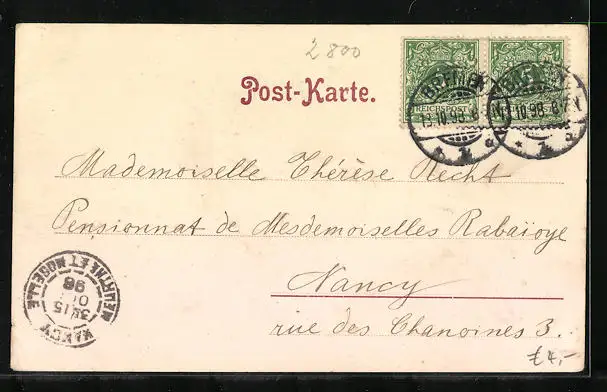 2800
Post-Karte.
REICHSPOST REICHSPOST
BREMEN BREMEN
13.10.98. 10.98. 8
Mademoiselle Thérèse Recht
Pensionnat de Mesdemoiselles Rabaïoye
Nancy
rue des Chanoines 3.
NANCY
15
98
MEURTHE ET MOSELLE
€4,-